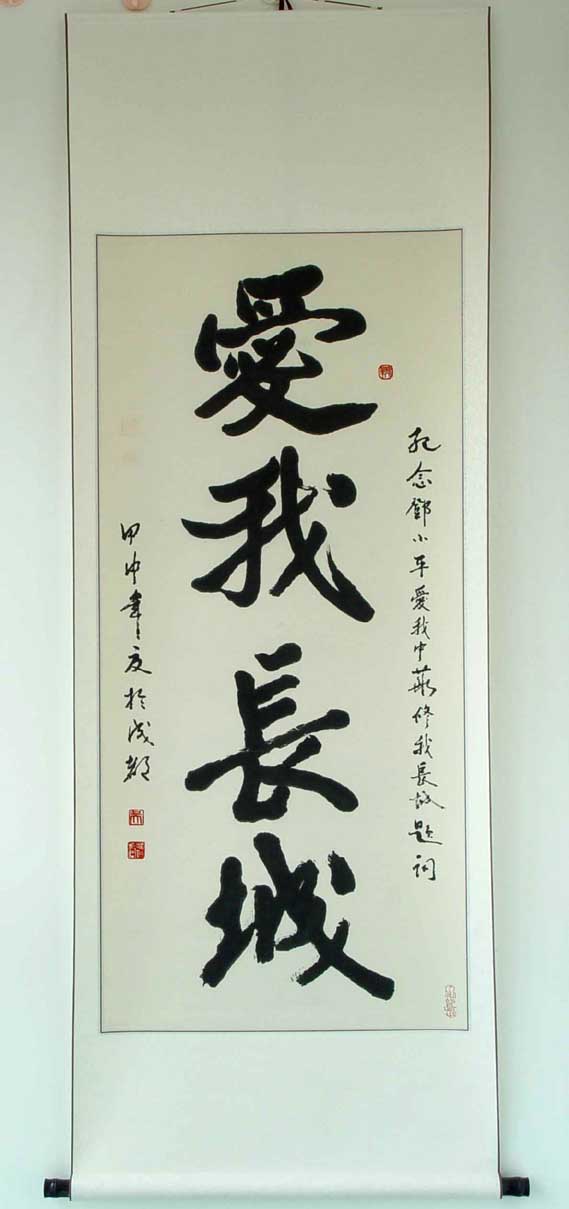 紀念鄧小平愛我中華修我長城題詞
愛我長城
甲申年夏於成都